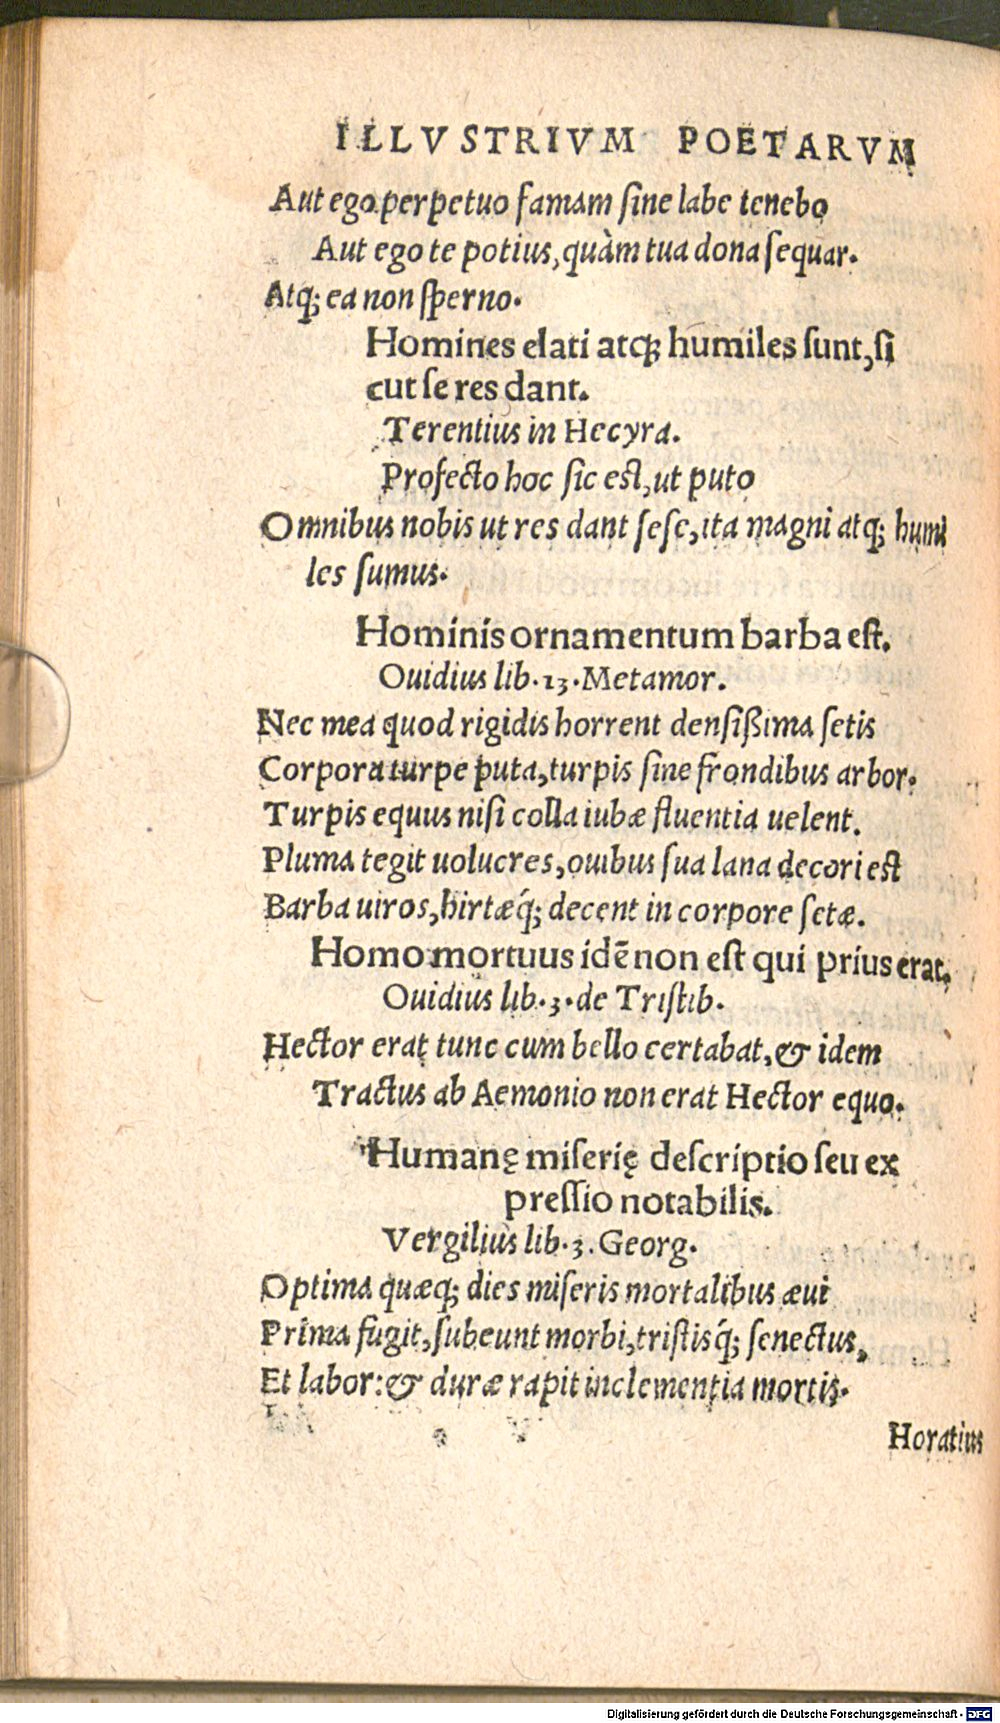 ILLVSTRIVM POETARVM
Aut ego perpetuo famam sine labe tenebo
Aut ego te potius, quàm tua dona sequar.
Atq; ea non sperno.
Homines elati atq; humiles sunt, si
cut se res dant.
Terentius in Hecyra.
Profecto hoc sic est, ut puto
Omnibus nobis ut res dant sese, ita magni atq; humi
les sumus.
Hominis ornamentum barba est.
Ouidius lib. 13. Metamor.
Nec mea quod rigidis horrent densißima setis
Corpora turpe puta, turpis sine frondibus arbor.
Turpis equus nisi colla iubæ fluentia uelent.
Pluma tegit uolucres, ouibus sua lana decori est
Barba uiros, hirtæq́; decent in corpore setæ.
Homo mortuus idẽ non est qui prius erat.
Ouidius lib. 3. de Tristib.
Hector erat tunc cum bello certabat, & idem
Tractus ab Aemonio non erat Hector equo.
Humanę miserię descriptio seu ex
pressio notabilis.
Vergilius lib. 3. Georg.
Optima quæq; dies miseris mortalibus æui
Prima fugit, subeunt morbi, tristisq́; senectus,
Et labor: & duræ rapit inclementia mortis.
Horatius
Digitalisierung gefördert durch die Deutsche Forschungsgemeinschaft - DFG